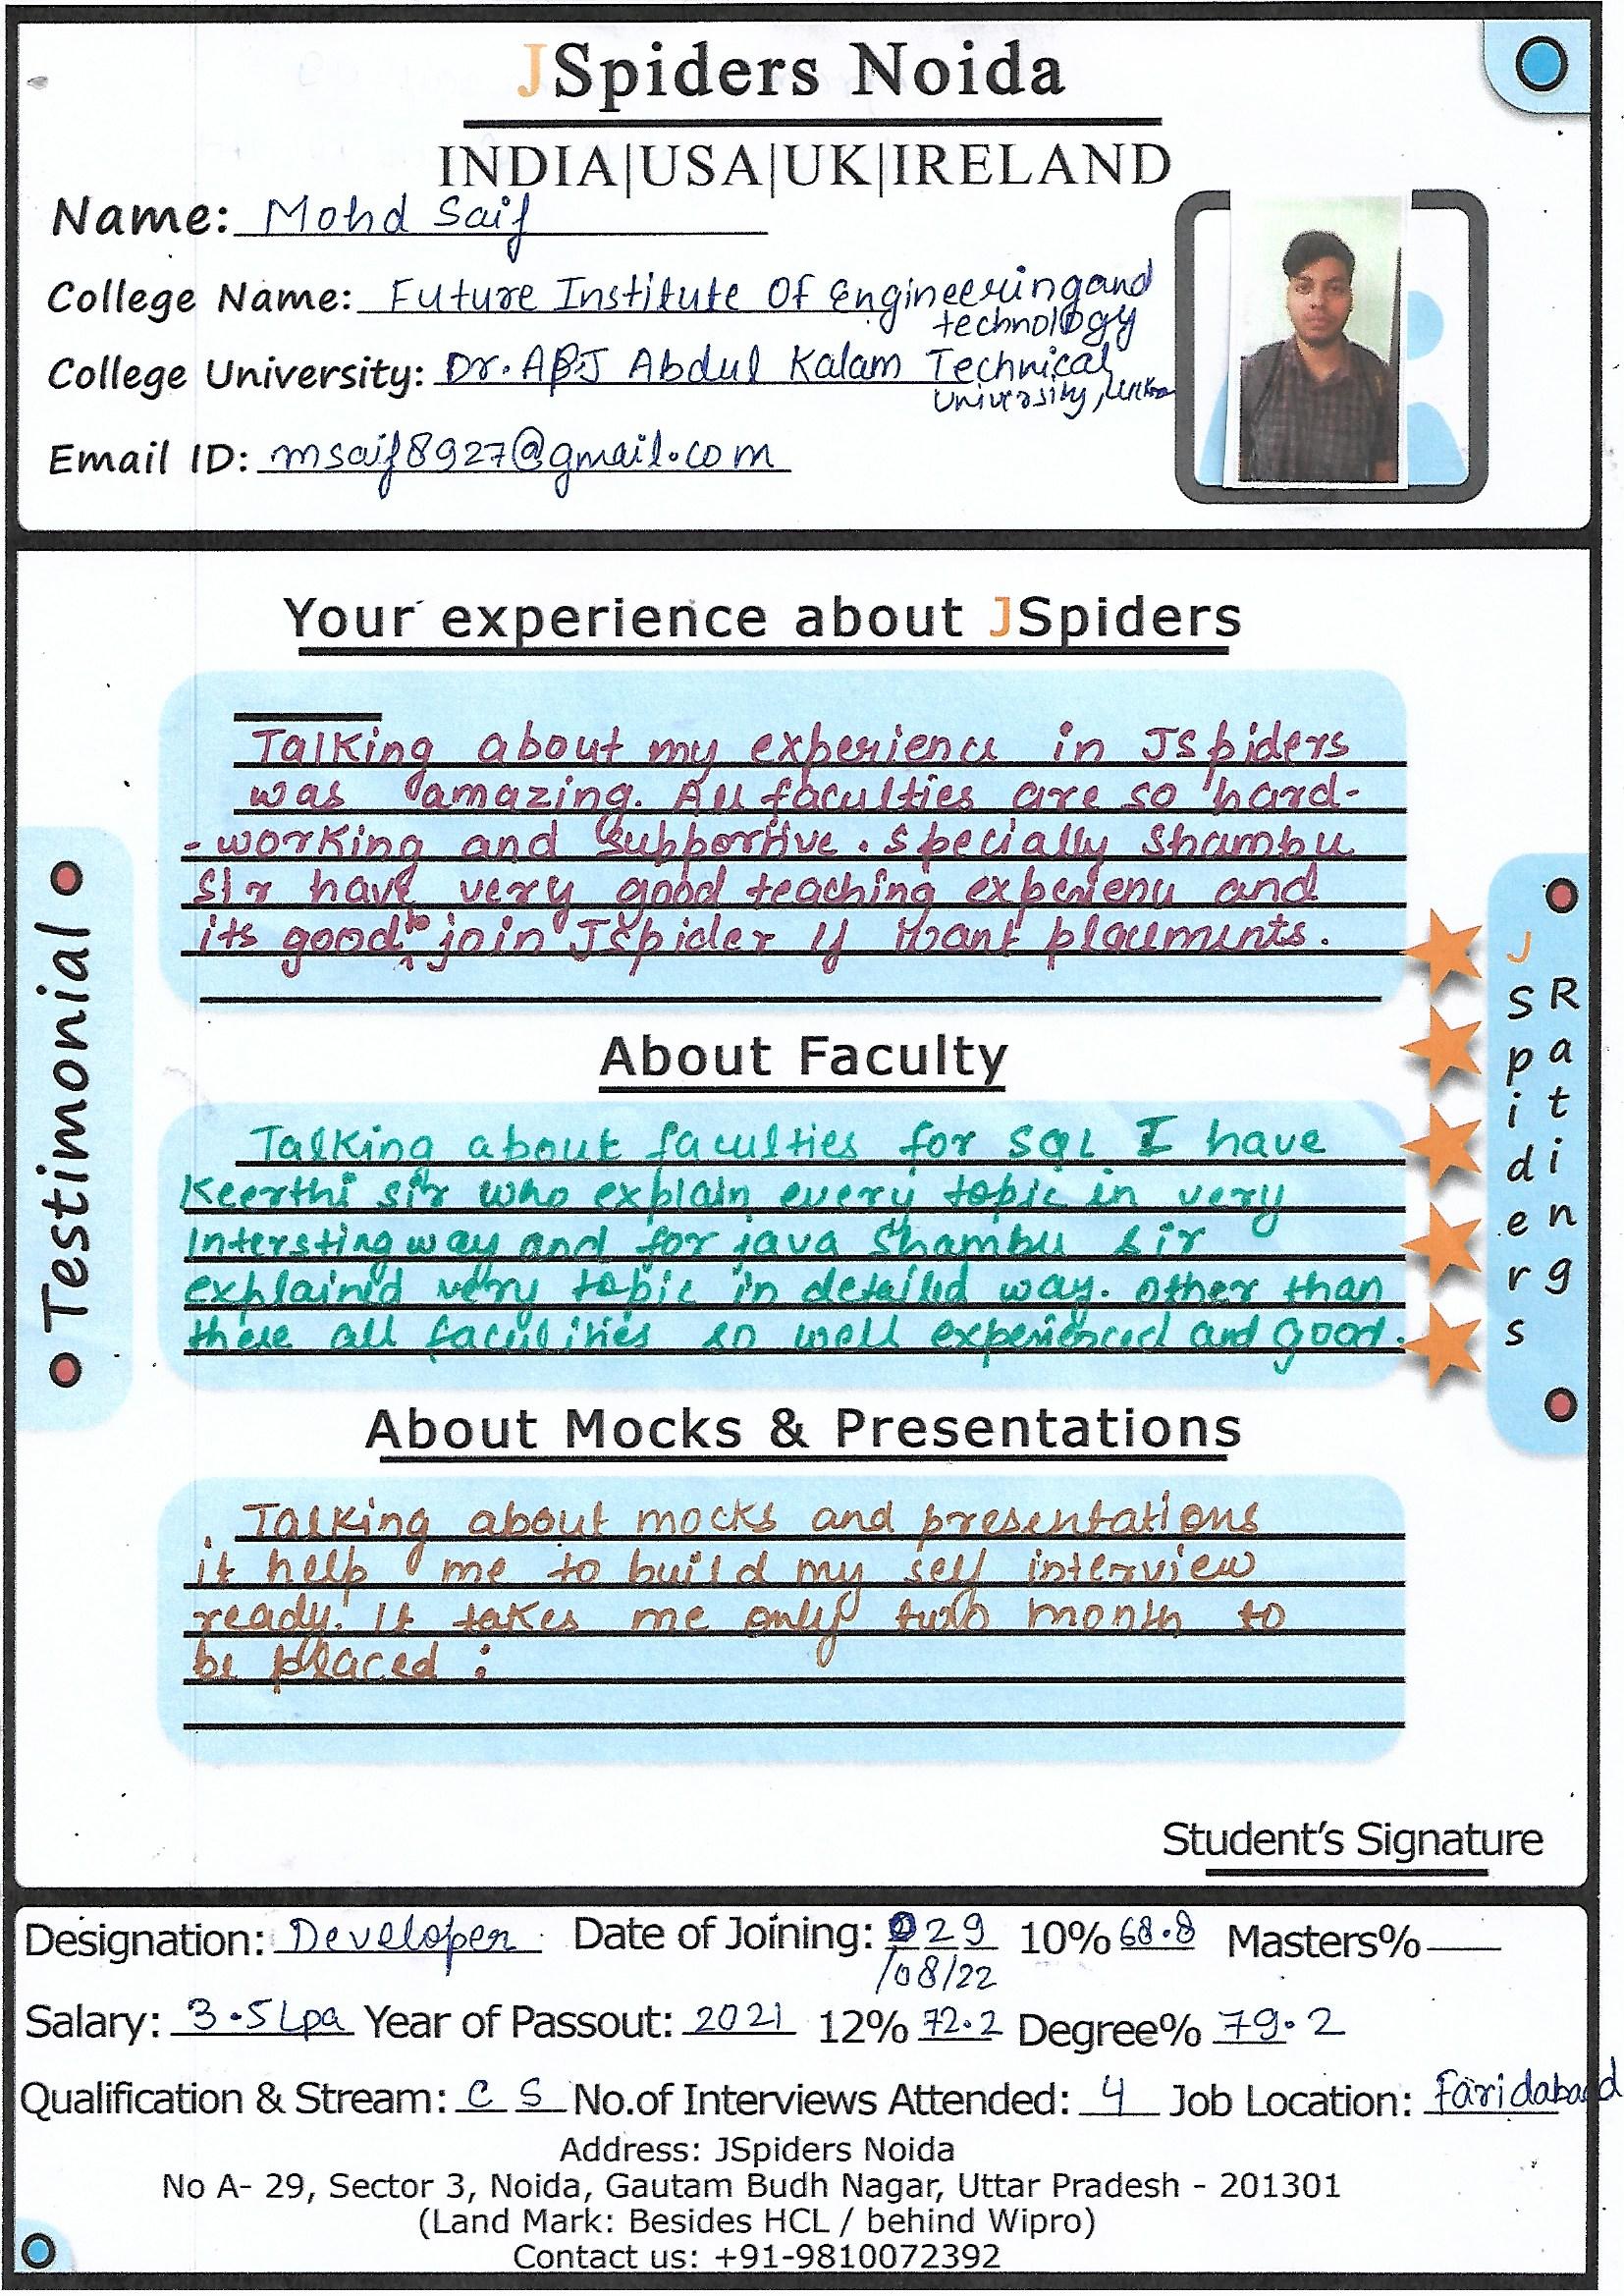 JSpiders Noida
INDIA|USA|UK|IRELAND
Name: Mohd Saif
College Name: Future Institute Of Engineering and
technology
College University: Dr. APJ Abdul Kalam Technical
University,
Email ID: msaif8927@gmail.com
Your experience about JSpiders
Talking about my experience in Jspiders
was amazing. All faculties are so hard-
-working and supportive. specially Shambu
sir have very good teaching experience and
its good to join Jspider if want placements.
About Faculty
Talking about faculties for SQL I have
Keerthi sir who explain every topic in very
Intersting way and for java Shambu sir
explained very topic in detailed way. other than
these all faculities so well experienced and good.
About Mocks & Presentations
Talking about mocks and presentations
it help me to build my self interview
ready. It takes me only two month to
be placed :
Testimonial
JSpiders
Ratings
Student's Signature
Designation: Developer Date of Joining: 29 10% 68.8 Masters%
/08/22
Salary: 3.5 Lpa Year of Passout: 2021 12% 72.2 Degree% 79.2
Qualification & Stream: C S No.of Interviews Attended: 4 Job Location: Faridabad
Address: JSpiders Noida
No A- 29, Sector 3, Noida, Gautam Budh Nagar, Uttar Pradesh - 201301
(Land Mark: Besides HCL / behind Wipro)
Contact us: +91-9810072392